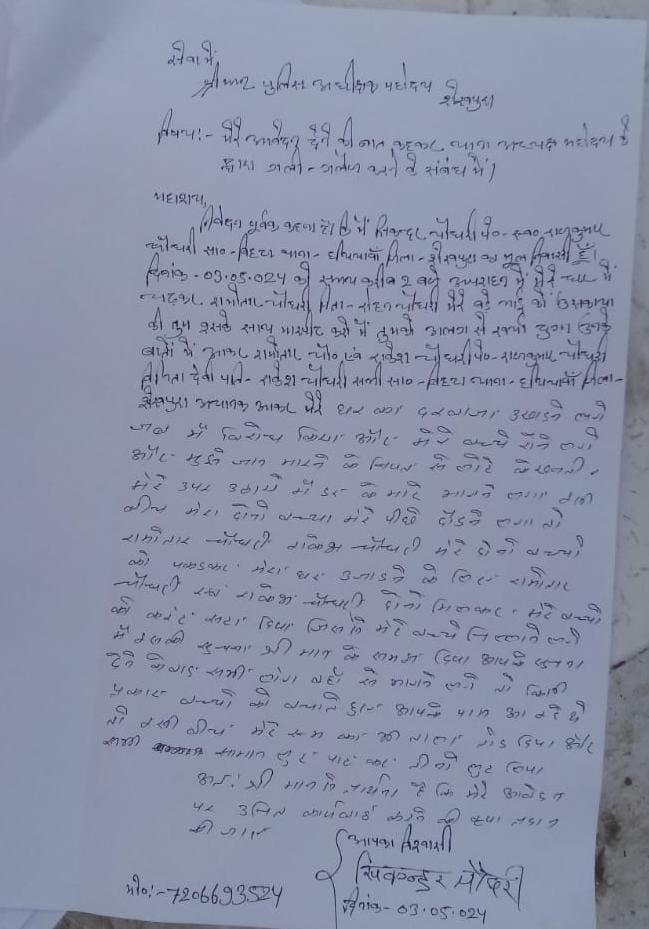 सेवा में,
श्रीमान पुलिस अधीक्षक महोदय
शेखपुरा
विषय:- मेरे आवेदन देने की बात कहकर थाना अध्यक्ष महोदय के
द्वारा गाली-गलौज करने के संबंध में।
महाशय,
निवेदन पूर्वक कहना है कि मैं सिकन्दर चौधरी पे०-स्व० राजकुमार
चौधरी सा०-विहटा थाना- जिला-शेखपुरा का मूल निवासी हूँ।
दिनांक-03.05.024 को समय करीब 2 बजे अपराहन में मेरे घर में
रामोतार चौधरी पिता- चौधरी मेरे बड़े भाई को उसकाया
की तुम इसके साथ मारपीट करो मैं तुमको अलग से रुपया दुगा उनके
बातों में आकर रामोतार चौ० एवं राकेश चौधरी पे०-राजकुमार चौधरी
देवी पति- राकेश चौधरी सभी सा०-विहटा थाना- जिला-
शेखपुरा अचानक आकर मेरे घर का दरवाजा उखाडने लगे
जब मैं विरोध किया और मेरे बच्चे रोने लगे
और मुझे जान मारने के नियत से लोहे के
मेरे उपर उठाये मैं डर के मारे भागने लगा तभी
बीच मेरा दोनो बच्चा मेरे पीछे दौडने लगा तो
रामोतार चौधरी राकेश चौधरी मेरे दोनो बच्चो
को पकडकर मेरा घर उजाडने के लिए रामोतार
चौधरी एवं राकेश चौधरी दोनो मिलकर मेरे बच्चो
को करंट सटा दिया जिससे मेरे बच्चे चिल्लाने लगे
मैं इसकी सुचना श्री मान के समक्ष दिया आपके सुचना
देने के बाद सभी लोग वहाँ से भागने लगे तो किसी
प्रकार बच्चो को बचाते हुए आपके पास आ रहे थे
तो इसी बीच मेरे रूम का भी ताला तोड दिया और
सभी सामान लुट पाट कर लुट लिया
अत: श्री मान से प्रार्थना है कि मेरे आवेदन
पर उचित कार्यवाई करने की कृपा प्रदान
की जाए
आपका विश्वासी
सिकन्दर चौधरी
मो०:-7206693524
दिनांक-03.05.024